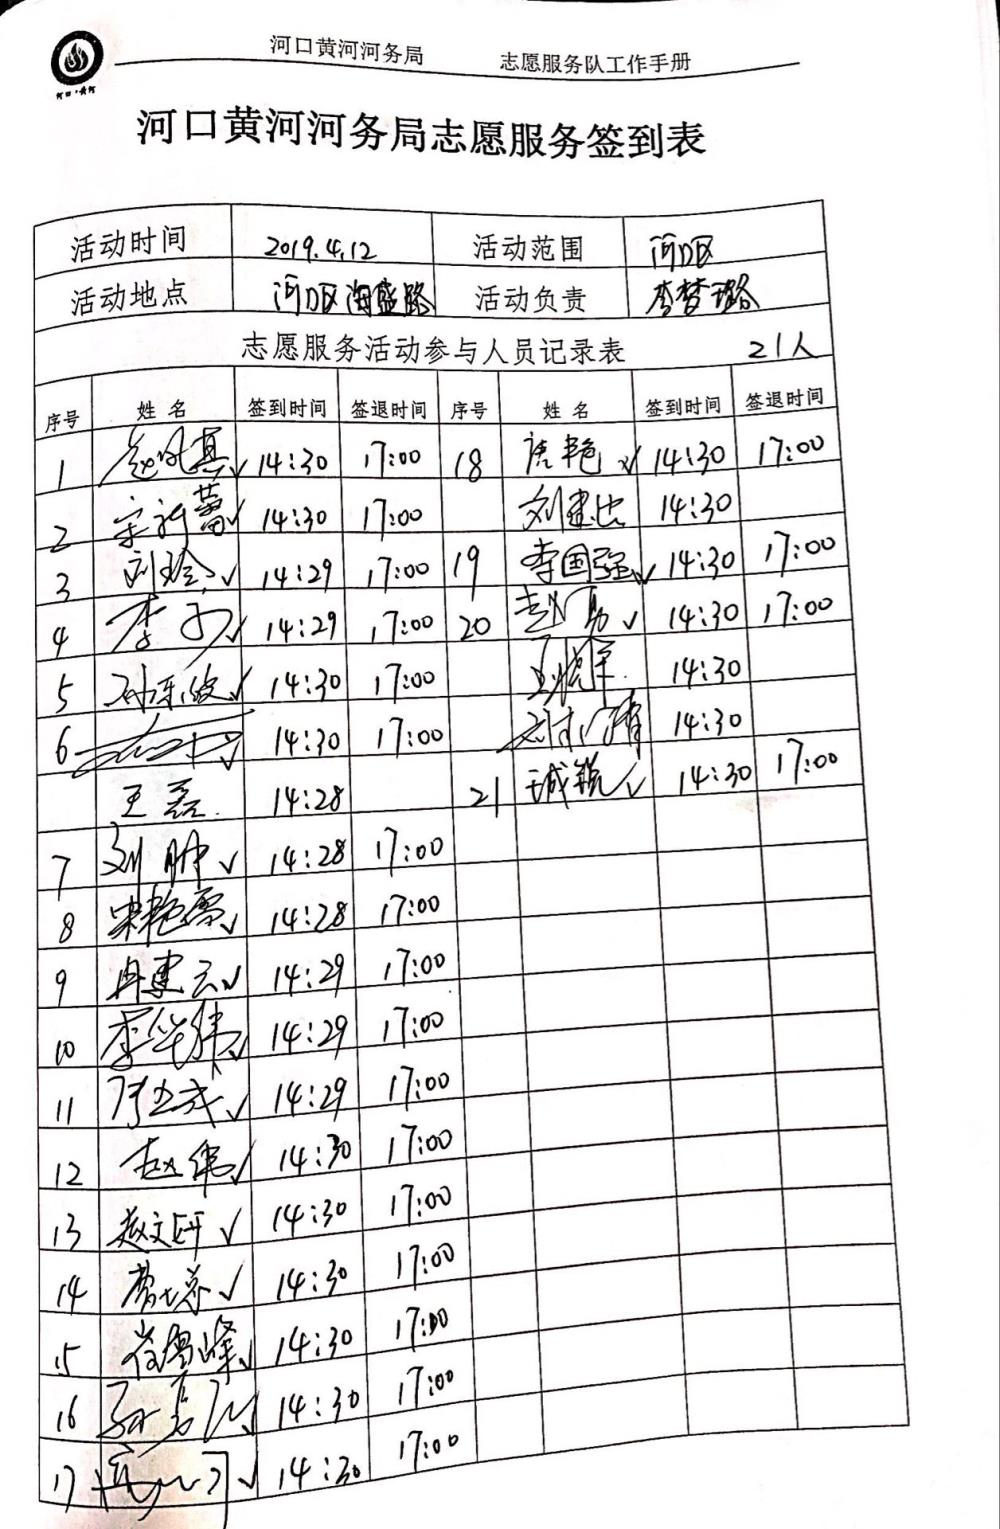 河口·黄河
河口黄河河务局 志愿服务队工作手册
河口黄河河务局志愿服务签到表
活动时间 2019.4.12 活动范围 河口区
活动地点 河口区海盛路 活动负责 李梦璐
志愿服务活动参与人员记录表 21人
序号 姓名 签到时间 签退时间 序号 姓名 签到时间 签退时间
1 赵风真√ 14:30 17:00 18 √ 14:30 17:00
2 宋新蕾√ 14:30 17:00 刘建 14:30
3 刘玲√ 14:29 17:00 19 李国强√ 14:30 17:00
4 李 √ 14:29 17:00 20 赵勇√ 14:30 17:00
5 √ 14:30 17:00 14:30
6 √ 14:30 17:00 14:30
王磊 14:28 21 √ 14:30 17:00
7 刘 √ 14:28 17:00
8 宋艳雷√ 14:28 17:00
9 冉建云√ 14:29 17:00
10 李华伟√ 14:29 17:00
11 √ 14:29 17:00
12 赵伟√ 14:30 17:00
13 赵文研√ 14:30 17:00
14 √ 14:30 17:00
15 崔雷峰√ 14:30 17:00
16 √ 14:30 17:00
17 √ 14:30 17:00